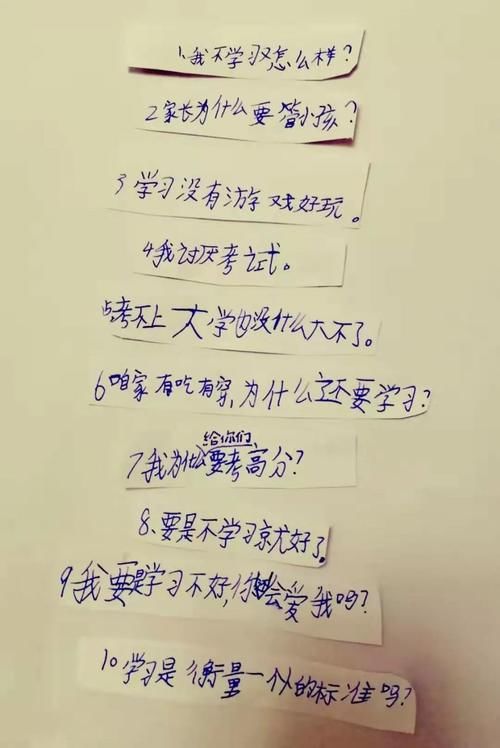 1.我不学习又怎么样?
2家长为什么要管小孩?
3学习没有游戏好玩。
4我讨厌考试。
5考不上大学也没什么大不了。
6咱家有吃有穿,为什么还要学习?
给你们
7我为什么要考高分?
8.要是不学习就好了
9我要是学习不好,你会爱我吗?
10学习是衡量一个人的标准吗?